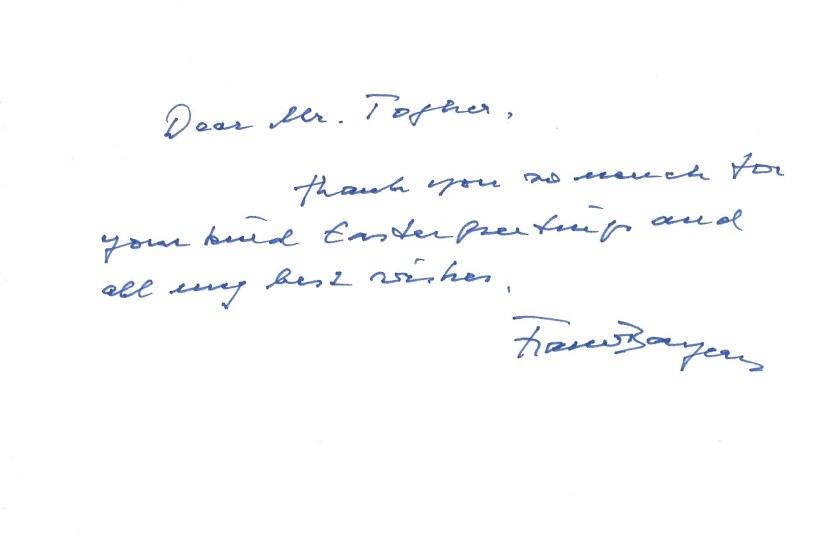 Dear Mr. Togher,
thank you so much for
your kind Easter greetings and
all my best wishes.
Franz Bayer